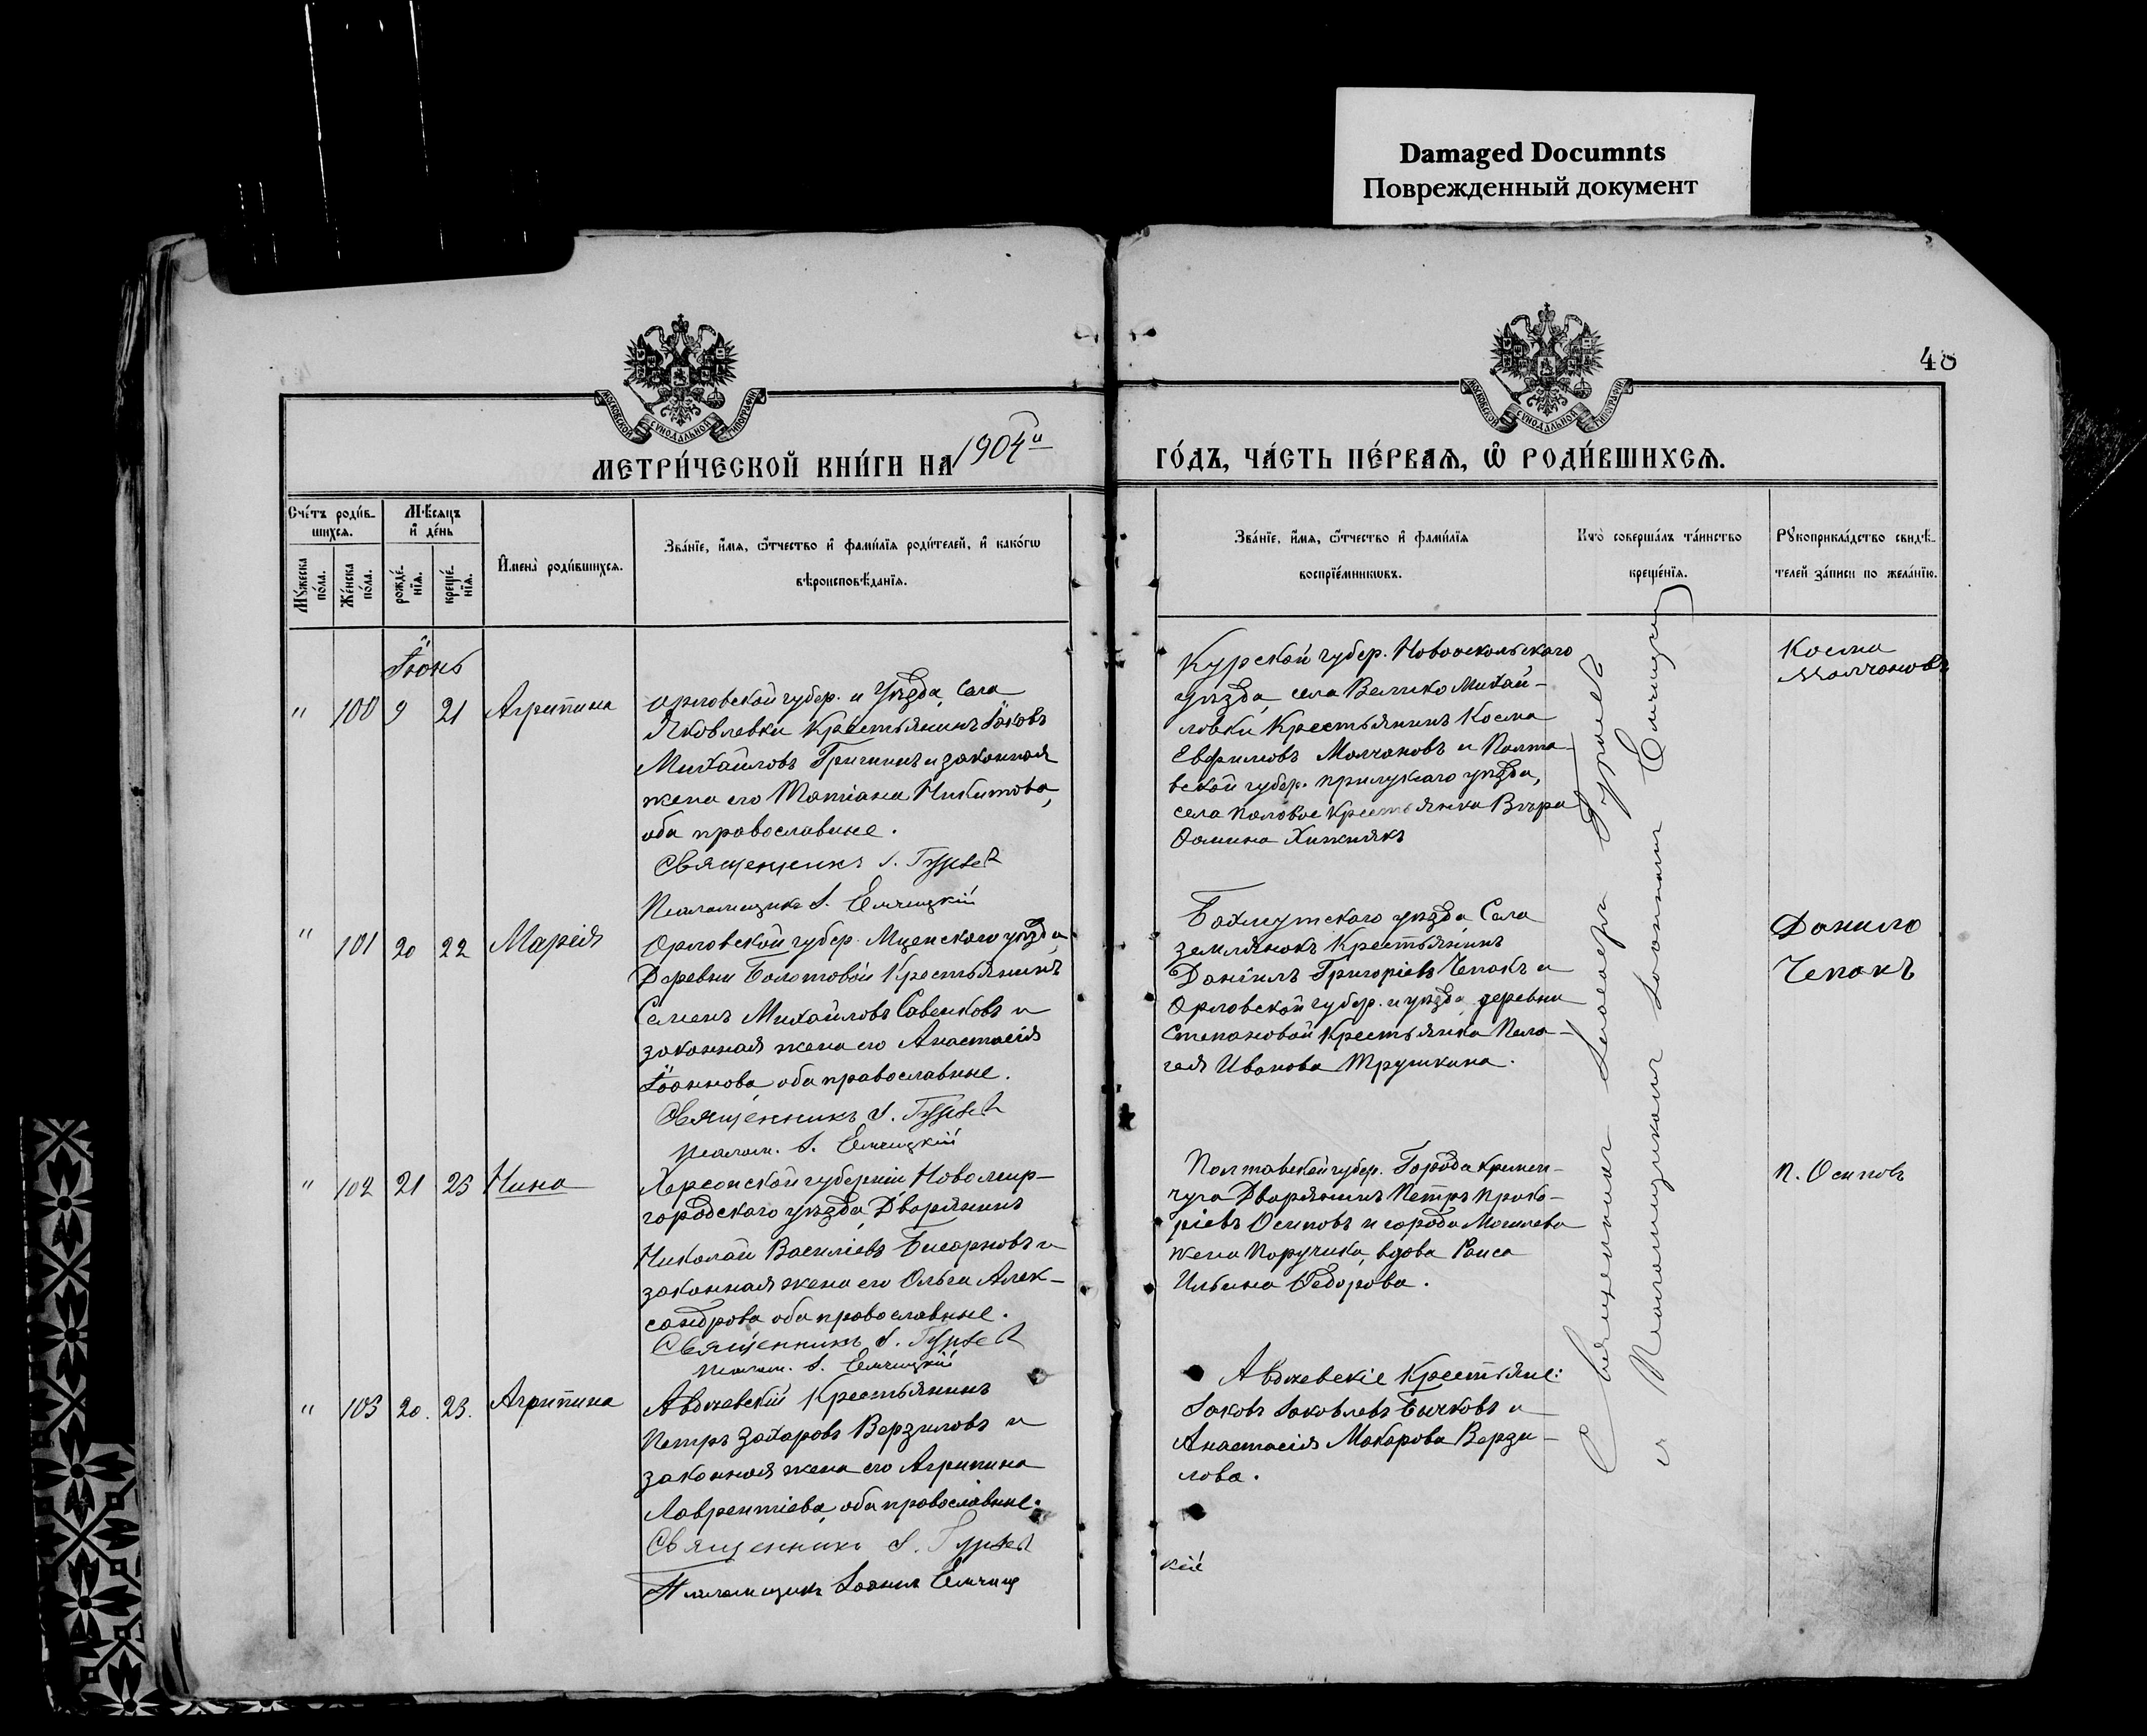 Damaged Documnts
Поврежденный документ
48
МОСКОВСКОЙ СУНОДАЛЬНОЙ ТИПОГРАФІИ
МОСКОВСКОЙ СУНОДАЛЬНОЙ ТИПОГРАФІИ
МЕТРИ́ЧЕСКОЙ КНИ́ГИ НА 1904й
ГО́ДЪ, ЧА́СТЬ ПЕ́РВАѦ, Ѡ҆ РОДИ́ВШИХСѦ.
Сче́тъ роди́в-
шихсѧ.
Мꙋ́жеска по́ла.
Же́нска по́ла.
Мѣ́сѧцъ
и҆ де́нь
рожде́-
нїѧ.
креще́-
нїѧ.
И҆мена̀ роди́вшихсѧ.
Зва́нїе, и҆́мѧ, ѻ҆́тчество и҆ фами́лїѧ роди́телей, и҆ како́гѡ
вѣроисповѣ́данїѧ.
Зва́нїе, и҆́мѧ, ѻ҆́тчество и҆ фами́лїѧ
воспрїе́мникѡвъ.
Кто̀ соверша́лъ та́инство
креще́нїѧ.
Рꙋкоприкла́дство свидѣ́-
телей за́писи по жела́нїю.
Іюнь
" 100 9 21 Агрипина
Орловской губер. и Уѣзда, Села
Яковлевки Крестьянинъ Іаковъ
Михайловъ Гришинъ и законная
жена его Татіана Никитова,
оба православные.
Священникъ І. Гурьев
Псаломщикъ І. Емчицкій
Курской губер. Новооскольскаго
уѣзда, села Велико Михай-
ловки Крестьянинъ Косма
Евфимовъ Молчановъ и Полта-
вской губер. Прилукаго уѣзда,
села Половое Крестьянка Вѣра
Фомина Хижнякъ
Косма
Молчановъ
" 101 20 22 Марія
Орловской губер. Мценскаго уѣзда,
Деревни Болотовой Крестьянинъ
Семенъ Михайловъ Савенковъ и
законная жена его Анастасія
Іоаннова, оба православные.
Священникъ І. Гурьев
Псалом. І. Емчицкій
Бахмутскаго уѣзда Села
Землянокъ Крестьянинъ
Даніилъ Григоріевъ Чепакъ и
Орловской губер. и уѣзда, деревни
Степановой Крестьянка Пела-
гея Иванова Трушкина.
Данило
Чепакъ
" 102 21 23 Нина
Херсонской губерніи Новомир-
городскаго уѣзда, Дворянинъ
Николай Василіевъ Бисарновъ и
законная жена его Ольга Алек-
сандрова оба православные.
Священникъ І. Гурьев
Псалом. І. Емчицкій
Полтавской губер. Города Кремен-
чуга Дворянинъ Петръ Проко-
ріевъ Осиповъ и города Могилева
жена Поручика, вдова Раиса
Ильина Федорова.
П. Осиповъ
" 103 20. 23. Агрипина
Авдѣевскій Крестьянинъ
Петръ Захаровъ Верзиловъ и
законная жена его Агрипина
Лаврентіева, оба православные.
Священникъ І. Гурьев
Псаломщикъ Іоаннъ Емчиц
кій
Авдѣевскіе Крестьяне:
Іаковъ Іаковлевъ Бычковъ и
Анастасія Макарова Верзи-
лова.
Священникъ Гурьев
и Псаломщикомъ Іоанномъ Емчицкимъ